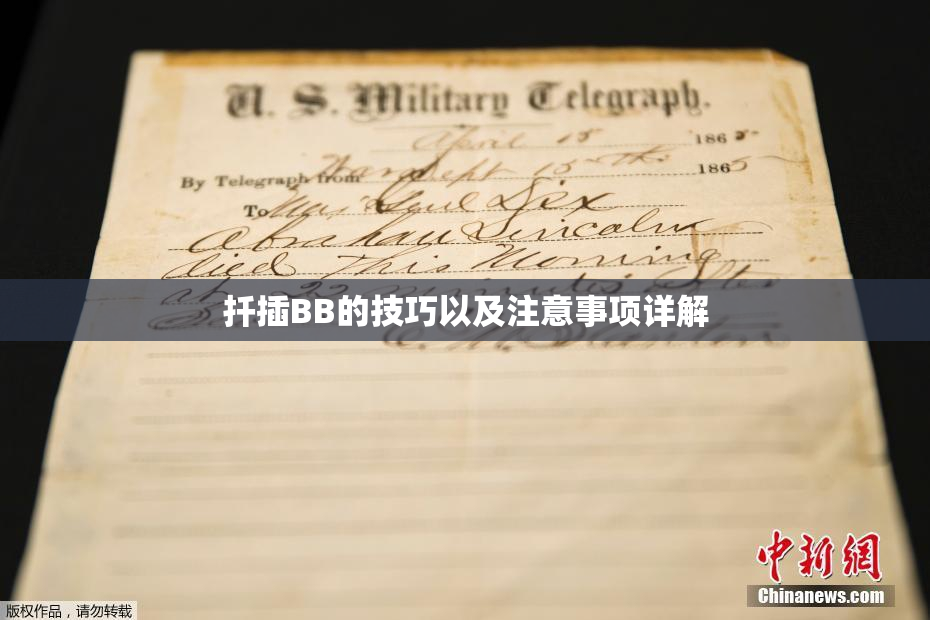 U. S. Military Telegraph.
April 15 1865
By Telegraph from War Dept 15th 1865
To Maj Genl Dix
Abraham Lincoln
died This Morning
at 22 minutes after
扦插BB的技巧以及注意事项详解
E. M. Stanton
中新網
Chinanews.com
版权作品，请勿转载